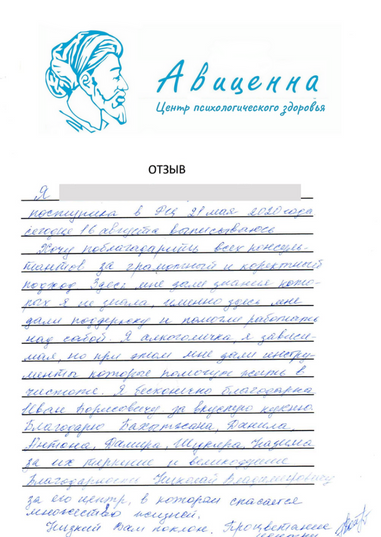 Авиценна
Центр психологического здоровья
ОТЗЫВ
Я
поступила в РЦ 21 мая 2020 года
сегодня 16 августа выписываюсь
Хочу поблагодарить всех консуль-
тантов за грамотный и коректный
подход. Здесь мне дали знания кото-
рых я не знала, именно здесь мне
дали поддержку и помогли работать
над собой. Я алкоголичка, я зависи-
мая, но при этом мне дали инстру-
менты которое помогут жить в
чистоте. Я бесконечно благодарна
Иван Борисовичу за вкусную кухню
Благодарю Данила,
Антона, Дамира, Шукура, Вадима
за их терпение и великодушие
Благодарность Николай Владимировичу
за его центр, в котором спасается
множество жизней.
Низкий Вам поклон. Процветание